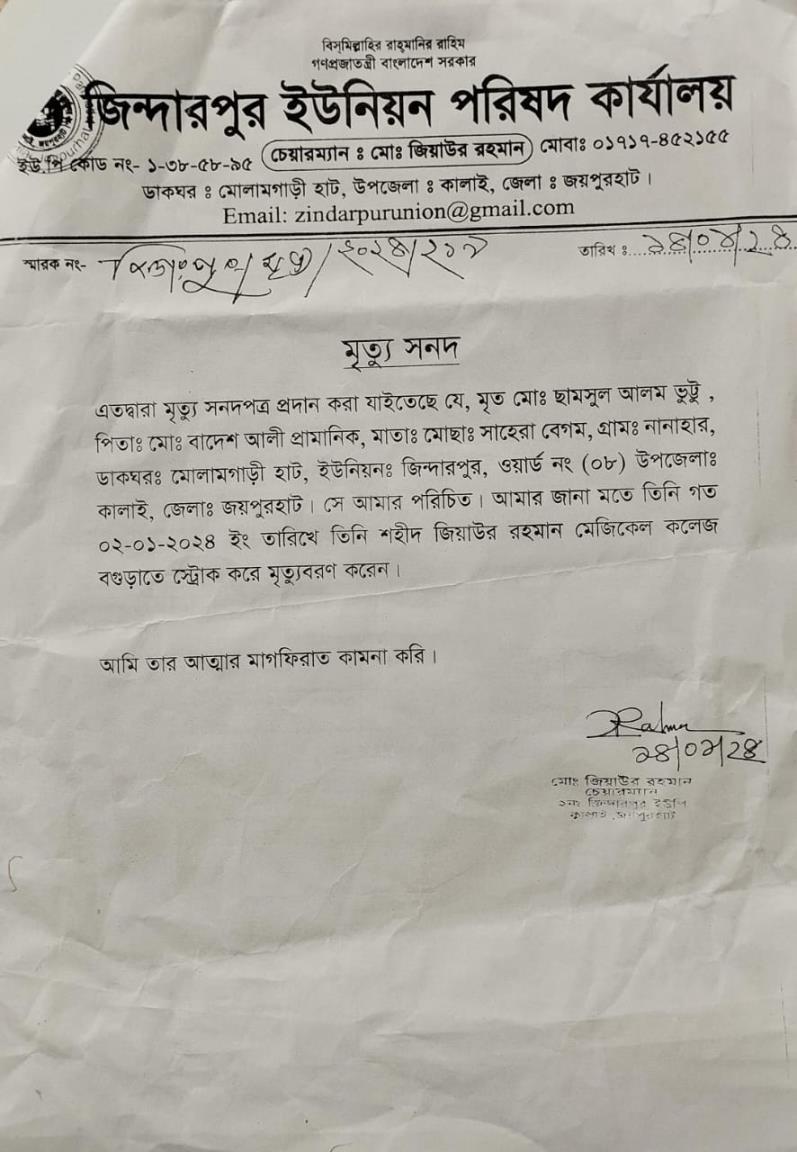 বিস্‌মিল্লাহির রাহ্‌মানির রাহিম
গণপ্রজাতন্ত্রী বাংলাদেশ সরকার
জিন্দারপুর ইউনিয়ন পরিষদ কার্যালয়
ইউ.পি কোড নং- ১-৩৮-৫৮-৯৫ চেয়ারম্যান ঃ মোঃ জিয়াউর রহমান মোবাঃ ০১৭১৭-৪৫২১৫৫
ডাকঘর ঃ মোলামগাড়ী হাট, উপজেলা ঃ কালাই, জেলা ঃ জয়পুরহাট।
Email: zindarpurunion@gmail.com
স্মারক নং-
তারিখ ঃ
মৃত্যু সনদ
এতদ্বারা মৃত্যু সনদপত্র প্রদান করা যাইতেছে যে, মৃত মোঃ ছামসুল আলম ভুট্টু ,
পিতাঃ মোঃ বাদেশ আলী প্রামানিক, মাতাঃ মোছাঃ সাহেরা বেগম, গ্রামঃ নানাহার,
ডাকঘরঃ মোলামগাড়ী হাট, ইউনিয়নঃ জিন্দারপুর, ওয়ার্ড নং (০৮) উপজেলাঃ
কালাই, জেলাঃ জয়পুরহাট। সে আমার পরিচিত। আমার জানা মতে তিনি গত
০২-০১-২০২৪ ইং তারিখে তিনি শহীদ জিয়াউর রহমান মেজিকেল কলেজ
বগুড়াতে স্ট্রোক করে মৃত্যুবরণ করেন।
আমি তার আত্মার মাগফিরাত কামনা করি।
মোঃ জিয়াউর রহমান
চেয়ারম্যান
১নং জিন্দারপুর ইউপি
কালাই, জয়পুরহাট